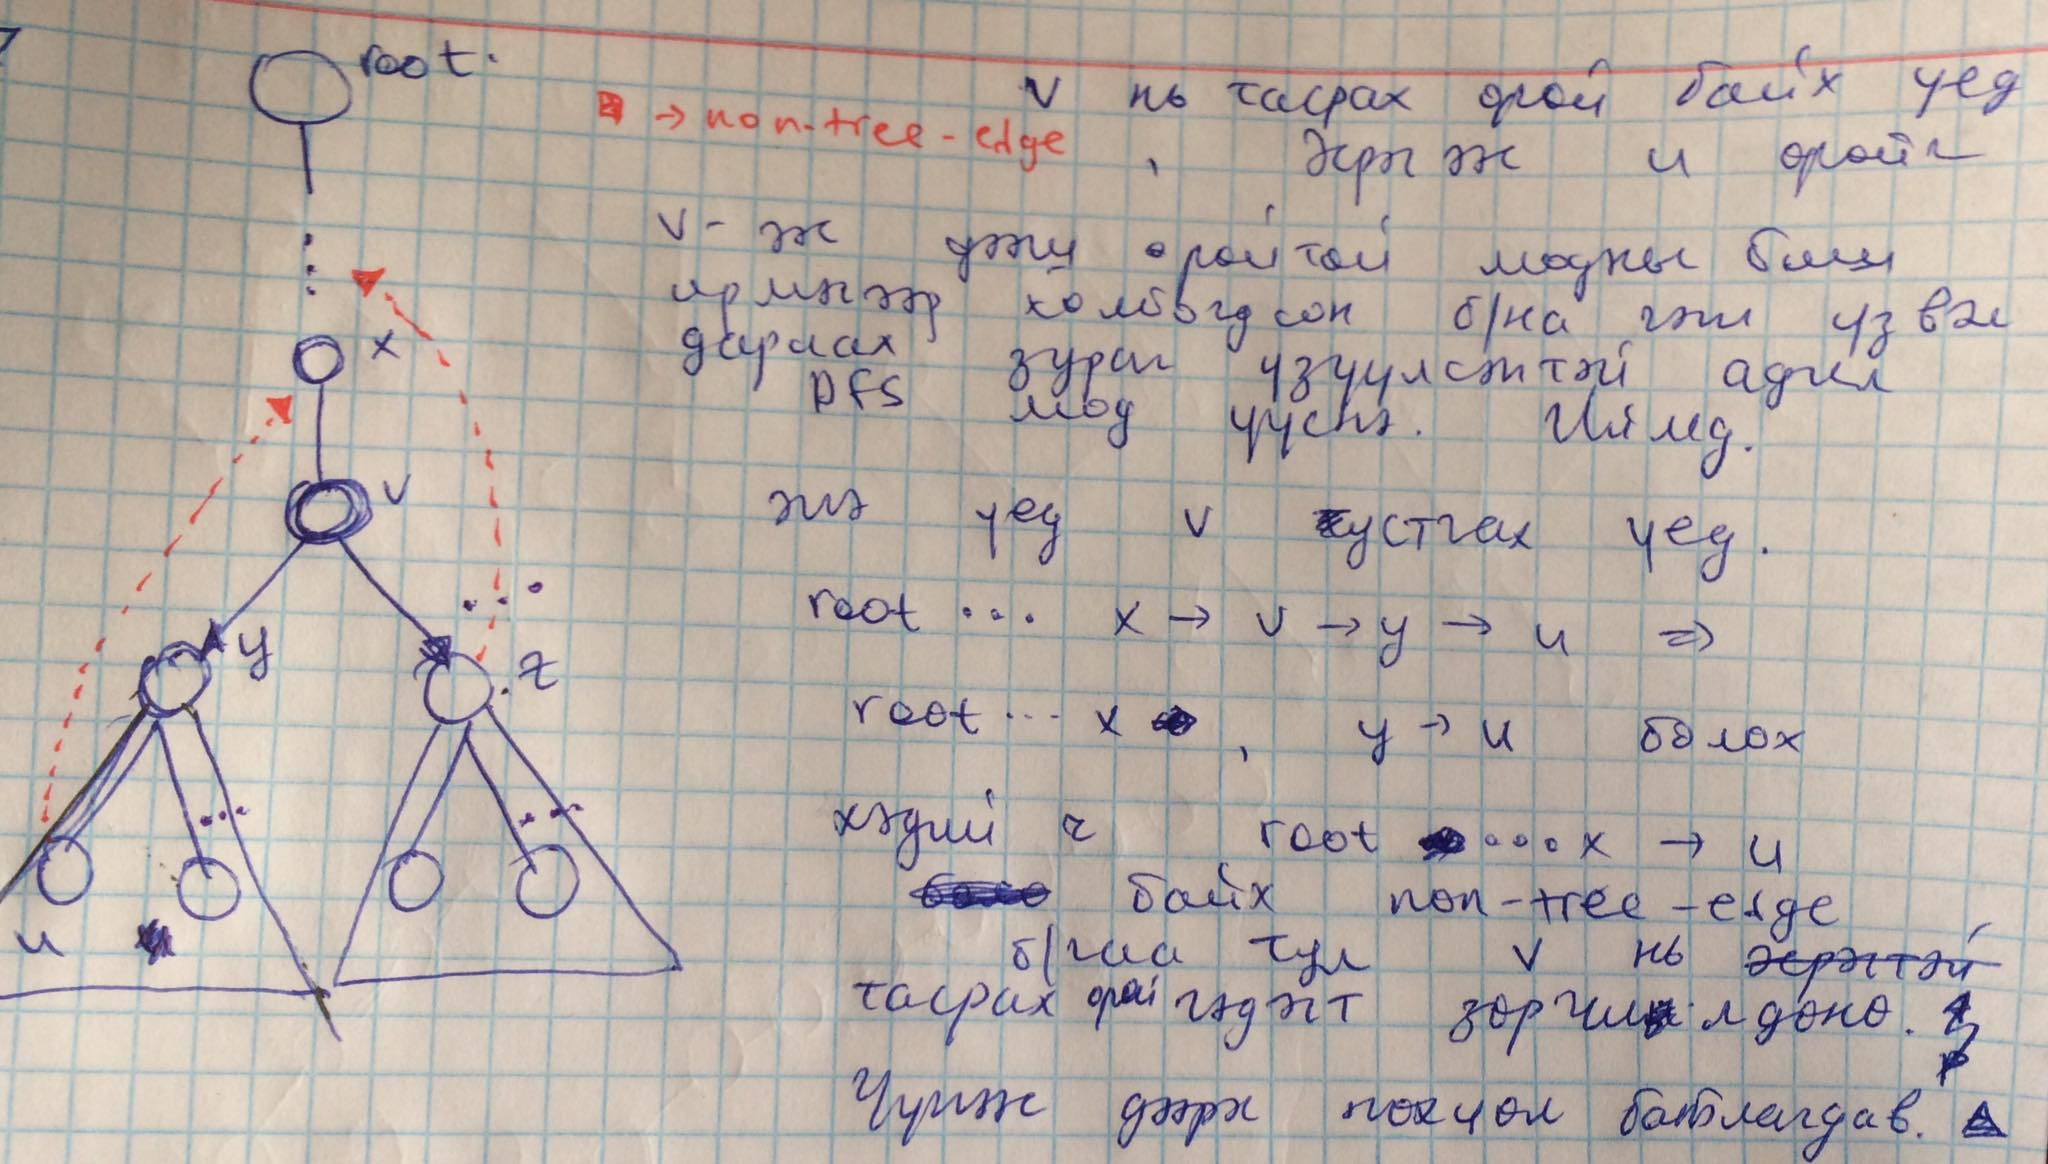 root.
→ non-tree-edge
v нь тасрах орой байх үед
, Хэрэгж u оройг
v-ж дээд оройтой модны биш
ирмэгээр холбогдсон б/на гэж үзвэл
дараах зураг үзүүлсэнтэй адил
DFS мод үүснэ. Иймд.
x
v
энэ үед v устгах үед.
root ... x → v → y → u ⇒
y
z
root ... x , y → u болох
хэдий ч root ... x → u
байх non-tree-edge
u
б/гаа тул v нь
тасрах орой гэдэгт зөрчилдөнө.
Үүгээр дээрх нөхцөл батлагдав.